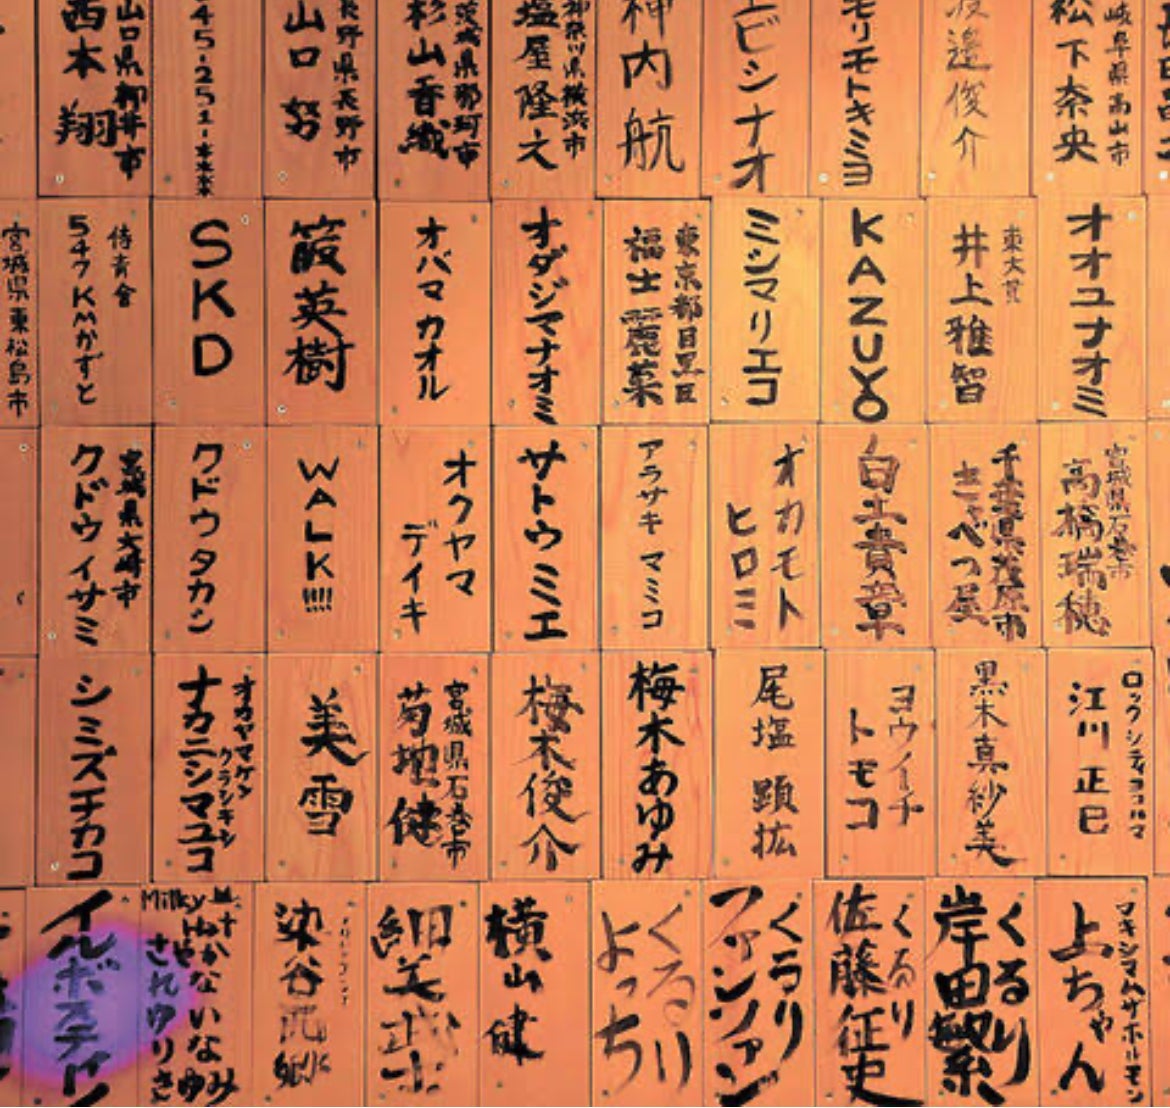 岐阜県高山市
松下奈央
渡邊俊介
モリモトキミヨ
エビシナオ
神内航
神奈川県横浜市
塩屋隆之
茨城県那珂市
杉山香織
長野県長野市
山口 努
445-251-***
山口県柳井市
西本 翔
オオユナオミ
井上雅智
KAZUYO
ミシマリエコ
東京都目黒区
福士麗菜
オダジマナオミ
オバマ カオル
英樹
SKD
侍青會
547KMかずと
宮城県東松島市
宮城県石巻市
高橋瑞穂
千葉県茂原市
きゃべつ屋
白土貴章
オカモト
ヒロミ
アラサキ マミコ
サトウミエ
オクヤマ
デイキ
WALK!!!!
クドウタカシ
宮城県大崎市
クドウイサミ
ロックシティ
江川正巳
黒木真紗美
ヨウイチ
トモコ
尾塩 顕拡
梅木あゆみ
梅木俊介
宮城県石巻市
菊地健
美雪
オカヤマケン
クラシキシ
ナカニシマユコ
シミズチカコ
マキシマムザホルモン
上ちゃん
くるり
岸田繁
くるり
佐藤征史
くるり
ファンファン
くるり
よっち
横山健
細美武士
染谷西郷
Milky
イルボスティ